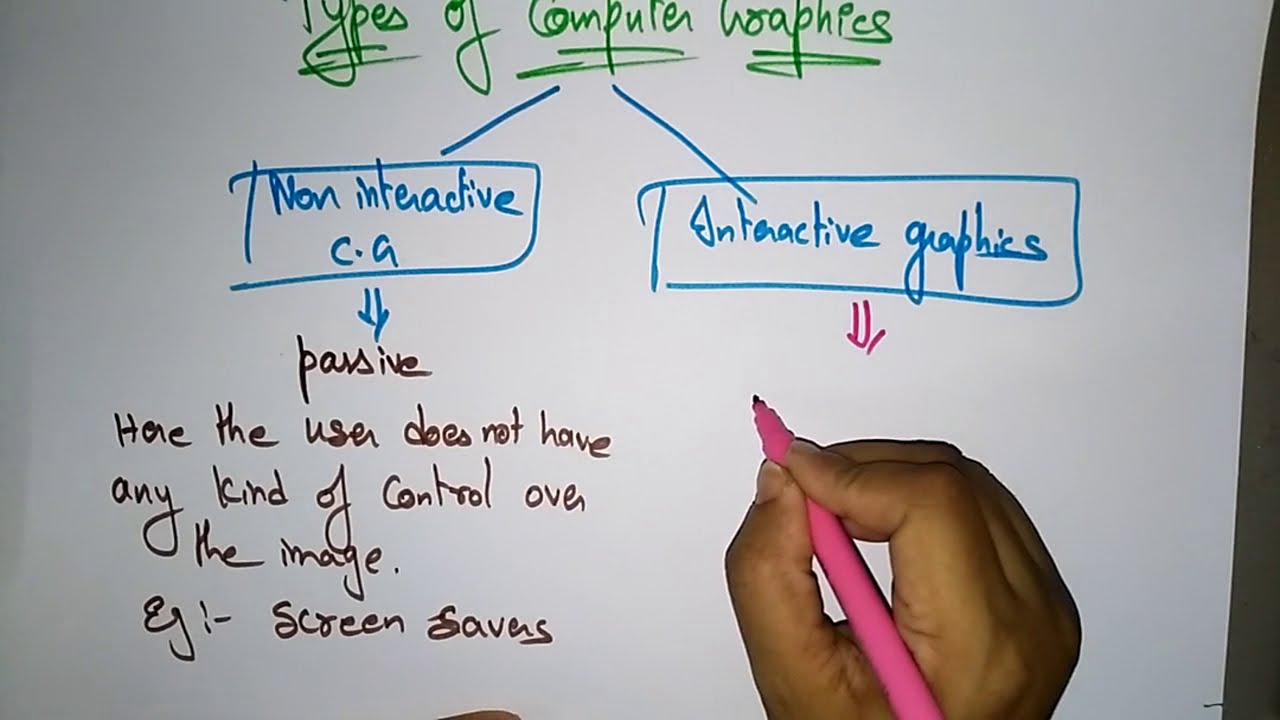 Types of Computer Graphics
Non interactive
C.G
Interactive graphics
passive
Here the user does not have
any kind of control over
the image.
Eg :- Screen Savers